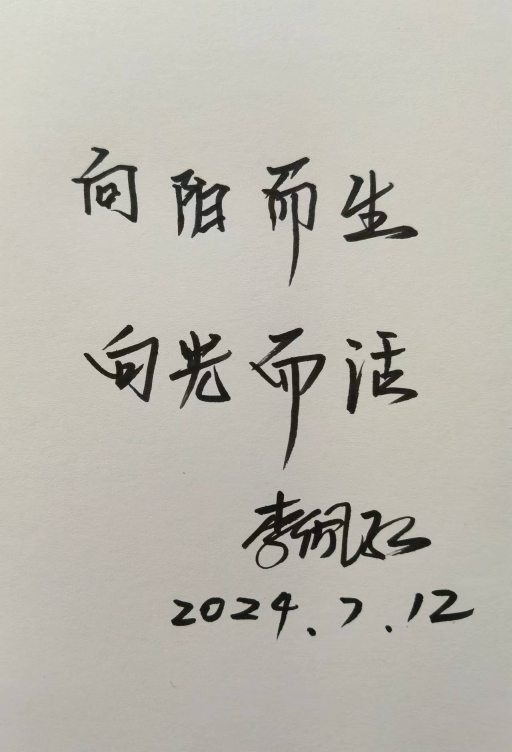 向阳而生
向光而活
李佩红
2024.7.12